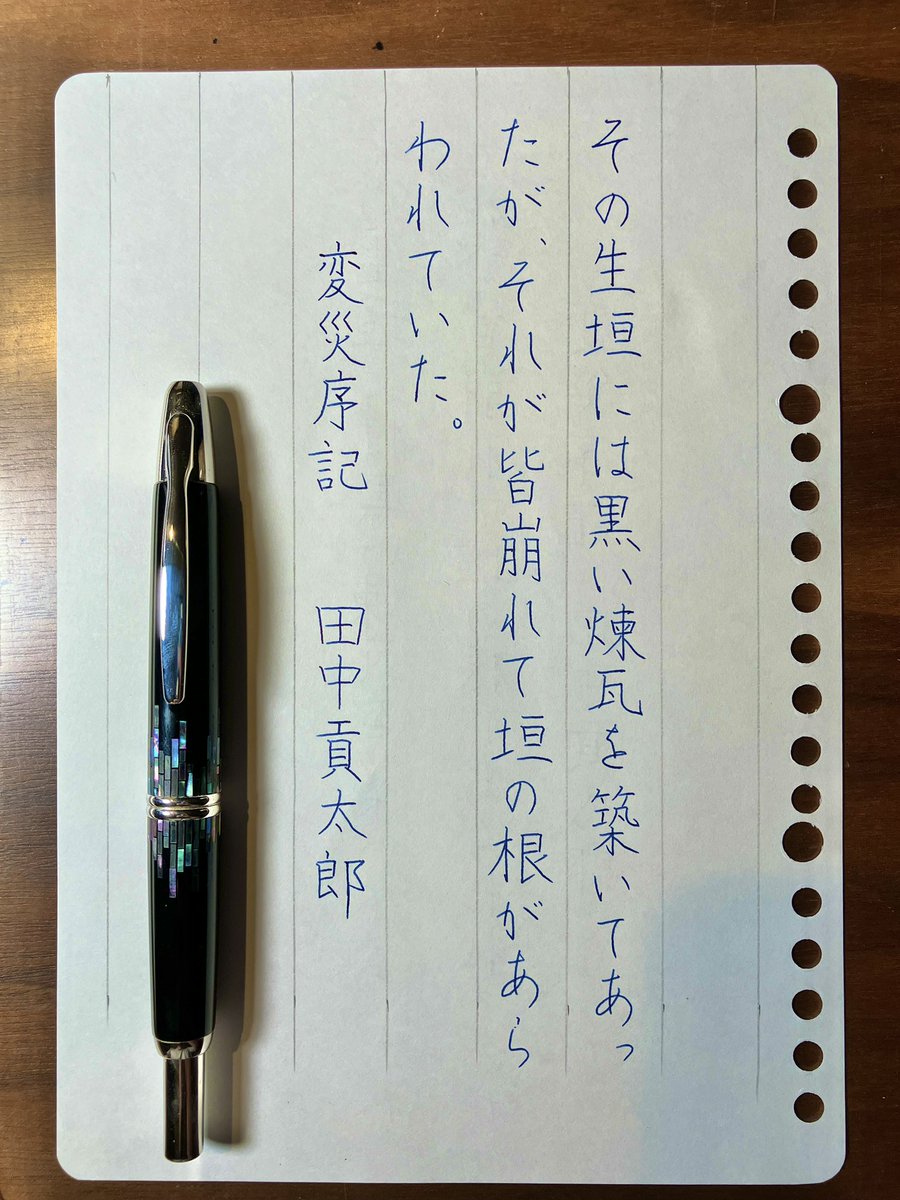 その生垣には黒い煉瓦を築いてあっ
たが、それが皆崩れて垣の根があら
われていた。
変災序記　田中貢太郎